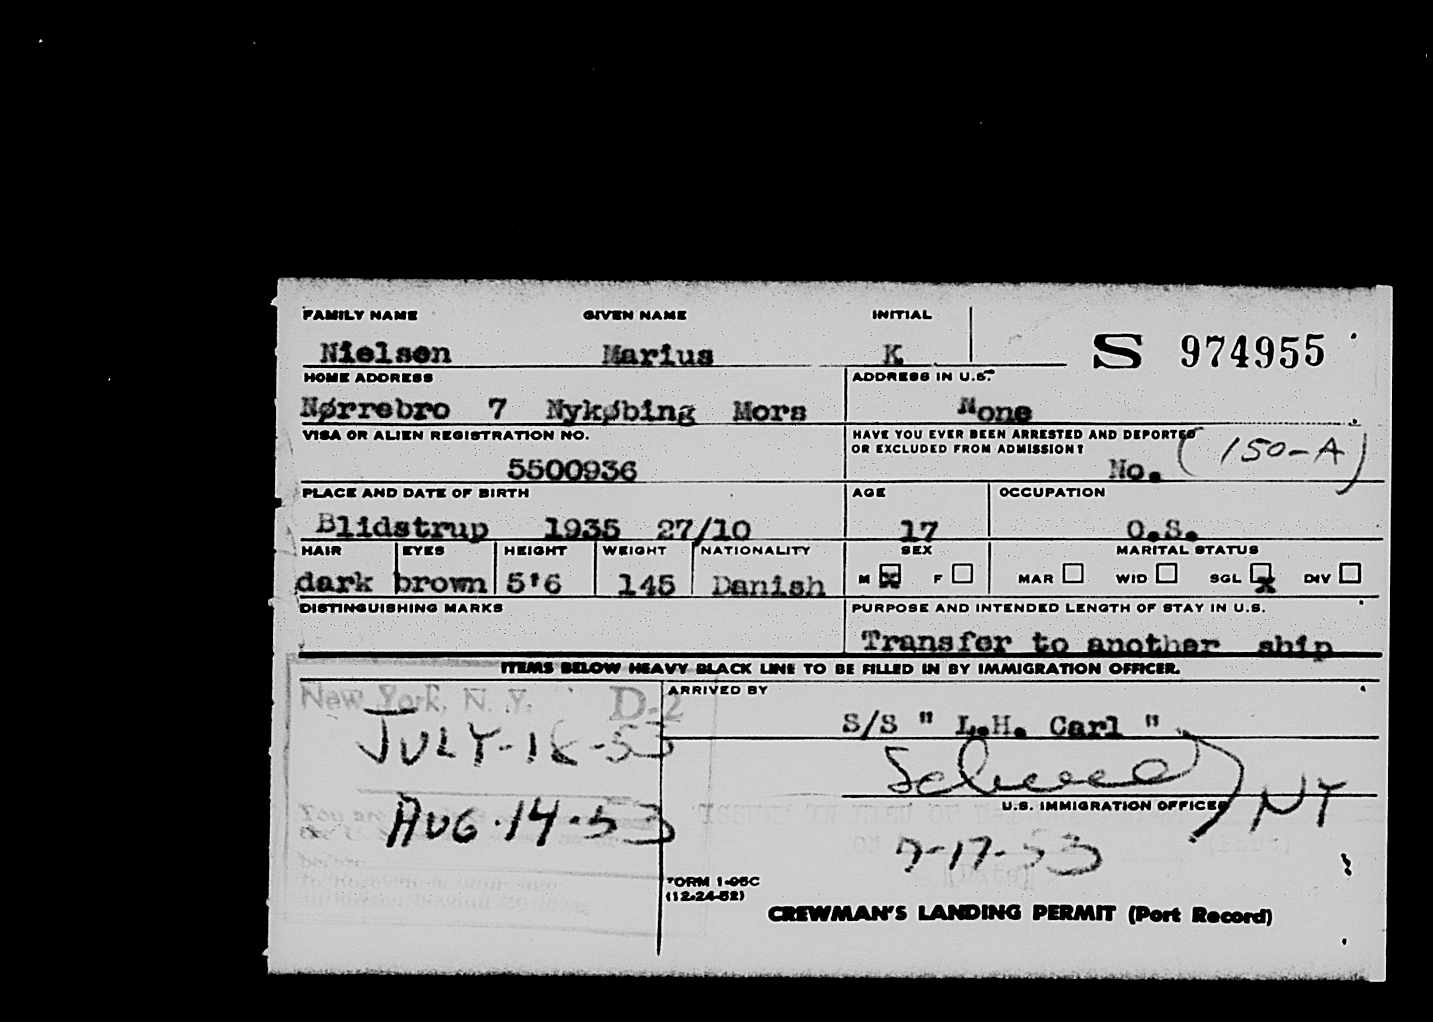 FAMILY NAME GIVEN NAME INITIAL
Nielsen Marius K S 974955
HOME ADDRESS ADDRESS IN U.S.
Nørrebro 7 Nykøbing Mors None
VISA OR ALIEN REGISTRATION NO. HAVE YOU EVER BEEN ARRESTED AND DEPORTED
OR EXCLUDED FROM ADMISSION?
5500936 No. (150-A)
PLACE AND DATE OF BIRTH AGE OCCUPATION
Blidstrup 1935 27/10 17 O.S.
HAIR EYES HEIGHT WEIGHT NATIONALITY SEX MARITAL STATUS
dark brown 5'6 145 Danish M x F MAR WID SGL x DIV
DISTINGUISHING MARKS PURPOSE AND INTENDED LENGTH OF STAY IN U.S.
Transfer to another ship
ITEMS BELOW HEAVY BLACK LINE TO BE FILLED IN BY IMMIGRATION OFFICER.
New York, N. Y. D-2 ARRIVED BY
S/S " L.H. Carl "
JULY-16-53
U.S. IMMIGRATION OFFICER NY
AUG-14-53
7-17-53
FORM I-95C
(12-24-52)
CREWMAN'S LANDING PERMIT (Port Record)